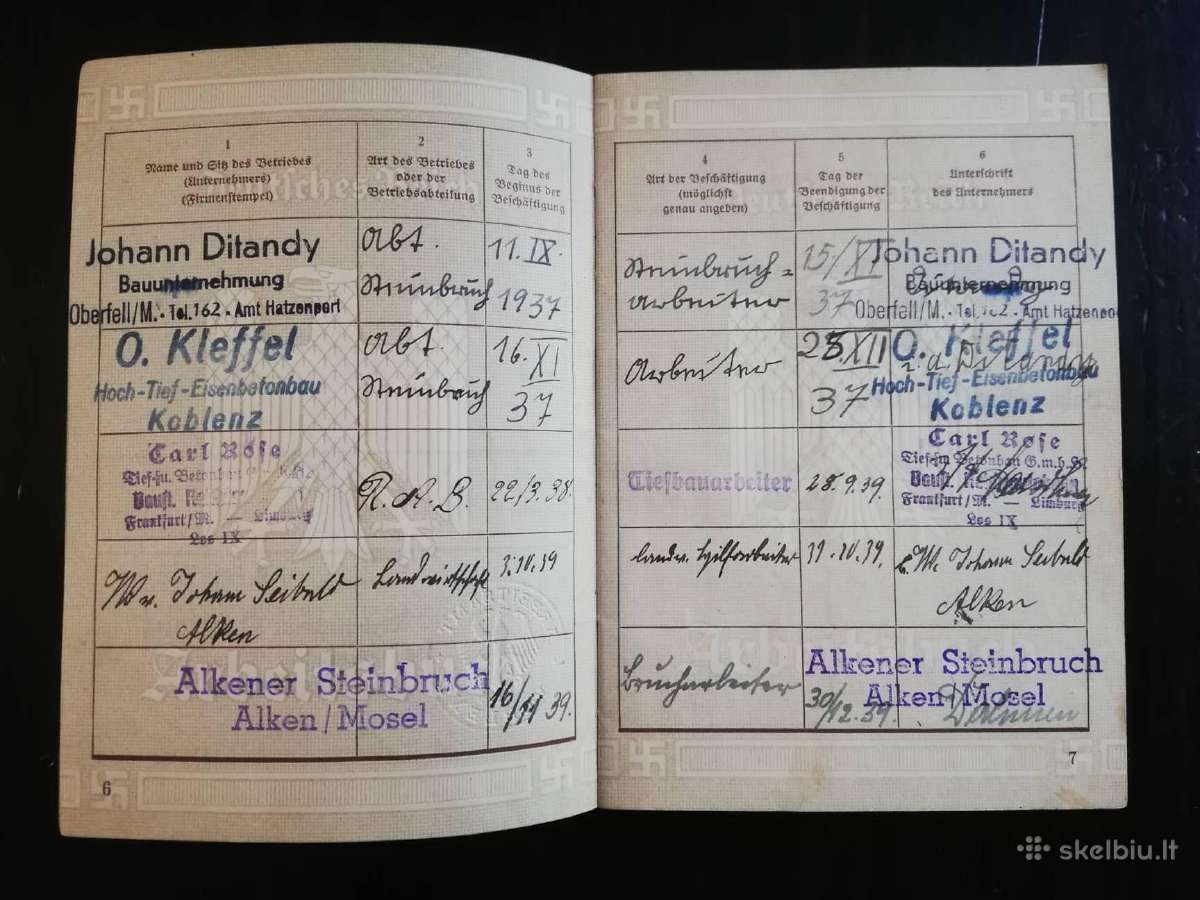 1
Name und Sitz des Betriebes
(Unternehmers)
(Firmenstempel)
2
Art des Betriebes
oder der
Betriebsabteilung
3
Tag des
Beginns der
Beschäftigung
Johann Ditandy
Bauunternehmung
Oberfell/M. · Tel. 162 - Amt Hatzenport
Abt.
Steinbruch
11. IX.
1937
O. Kleffel
Hoch-Tief-Eisenbetonbau
Koblenz
Abt.
Steinbruch
16. XI
37
Carl Rose
Frankfurt/M. — Limburg
Los IX
R. A. B.
22/3. 38.
Johann Seibeld
Alken
Landwirtschaft
3.10.39
Alkener Steinbruch
Alken/Mosel
16/11 39.
6
4
Art der Beschäftigung
(möglichst
genau angeben)
5
Tag der
Beendigung der
Beschäftigung
6
Unterschrift
des Unternehmers
Steinbruch=
arbeiter
15/XI
37
Johann Ditandy
Bauunternehmung
Oberfell/M. · Tel. 162 · Amt Hatzenport
Arbeiter
23 XII
37
O. Kleffel
Hoch-Tief-Eisenbetonbau
Koblenz
Tiefbauarbeiter
28.9.39.
Carl Rose
Tief- u. Betonbau G.m.b.H.
Frankfurt/M. — Limburg
Los IX
landw. Hilfsarbeiter
31.10.39.
Johann Seibeld
Alken
Brucharbeiter
30/12.39.
Alkener Steinbruch
Alken/Mosel
7
skelbiu.lt